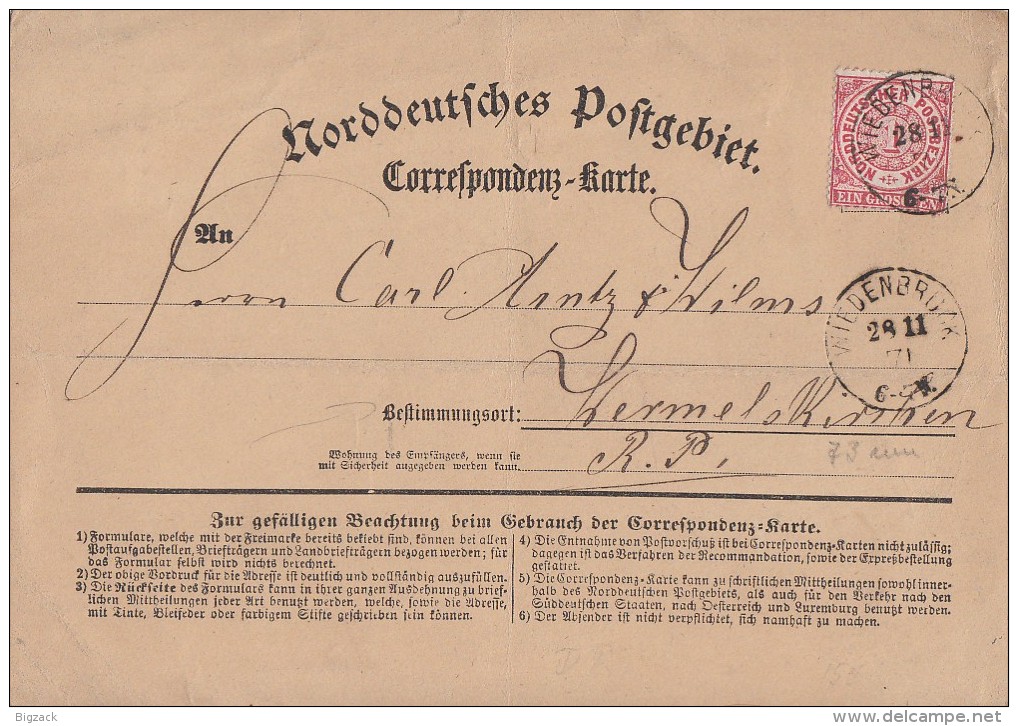 Norddeutsches Postgebiet.
Correspondenz-Karte.
NORDDEUTSCHER POSTBEZIRK
1
EIN GROSCHEN
WIEDENBRÜCK
28 11
6-7N.
An
Herrn Carl Arntz & Wilms
WIEDENBRÜCK
28 11
71
6-7N.
Bestimmungsort: Wermelskirchen
Wohnung des Empfängers, wenn sie
mit Sicherheit angegeben werden kann.
R. P.
73 mm
Zur gefälligen Beachtung beim Gebrauch der Correspondenz-Karte.
1) Formulare, welche mit der Freimarke bereits beklebt sind, können bei allen
Postausgabestellen, Briefträgern und Landbriefträgern bezogen werden; für
das Formular selbst wird nichts berechnet.
2) Der obige Vordruck für die Adresse ist deutlich und vollständig auszufüllen.
3) Die Rückseite des Formulars kann in ihrer ganzen Ausdehnung zu brief-
lichen Mittheilungen jeder Art benutzt werden, welche, sowie die Adresse,
mit Tinte, Bleifeder oder farbigem Stifte geschrieben sein können.
4) Die Entnahme von Postvorschuß ist bei Correspondenz-Karten nicht zulässig;
dagegen ist das Verfahren der Recommandation, sowie der Expreßbestellung
gestattet.
5) Die Correspondenz-Karte kann zu schriftlichen Mittheilungen sowohl inner-
halb des Norddeutschen Postgebiets, als auch für den Verkehr nach den
Süddeutschen Staaten, nach Oesterreich und Luxemburg benutzt werden.
6) Der Absender ist nicht verpflichtet, sich namhaft zu machen.
Bigzack
delcampe.net